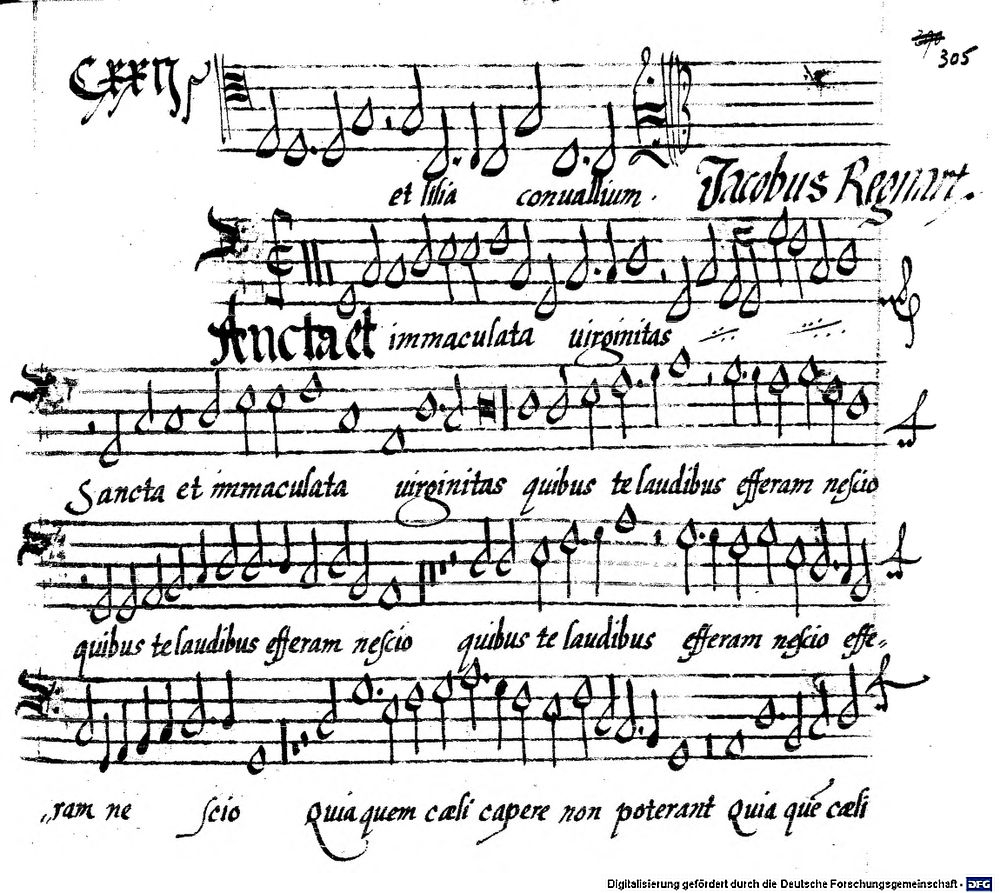 305
CXXII
et lilia conuallium.
Jacobus Regnart.
Sancta et immaculata uirginitas
Sancta et immaculata uirginitas quibus te laudibus efferam nescio
quibus te laudibus efferam nescio quibus te laudibus efferam nescio effe-
„ram ne scio Quia quem cæli capere non poterant Quia quē cæli
Digitalisierung gefördert durch die Deutsche Forschungsgemeinschaft - DFG